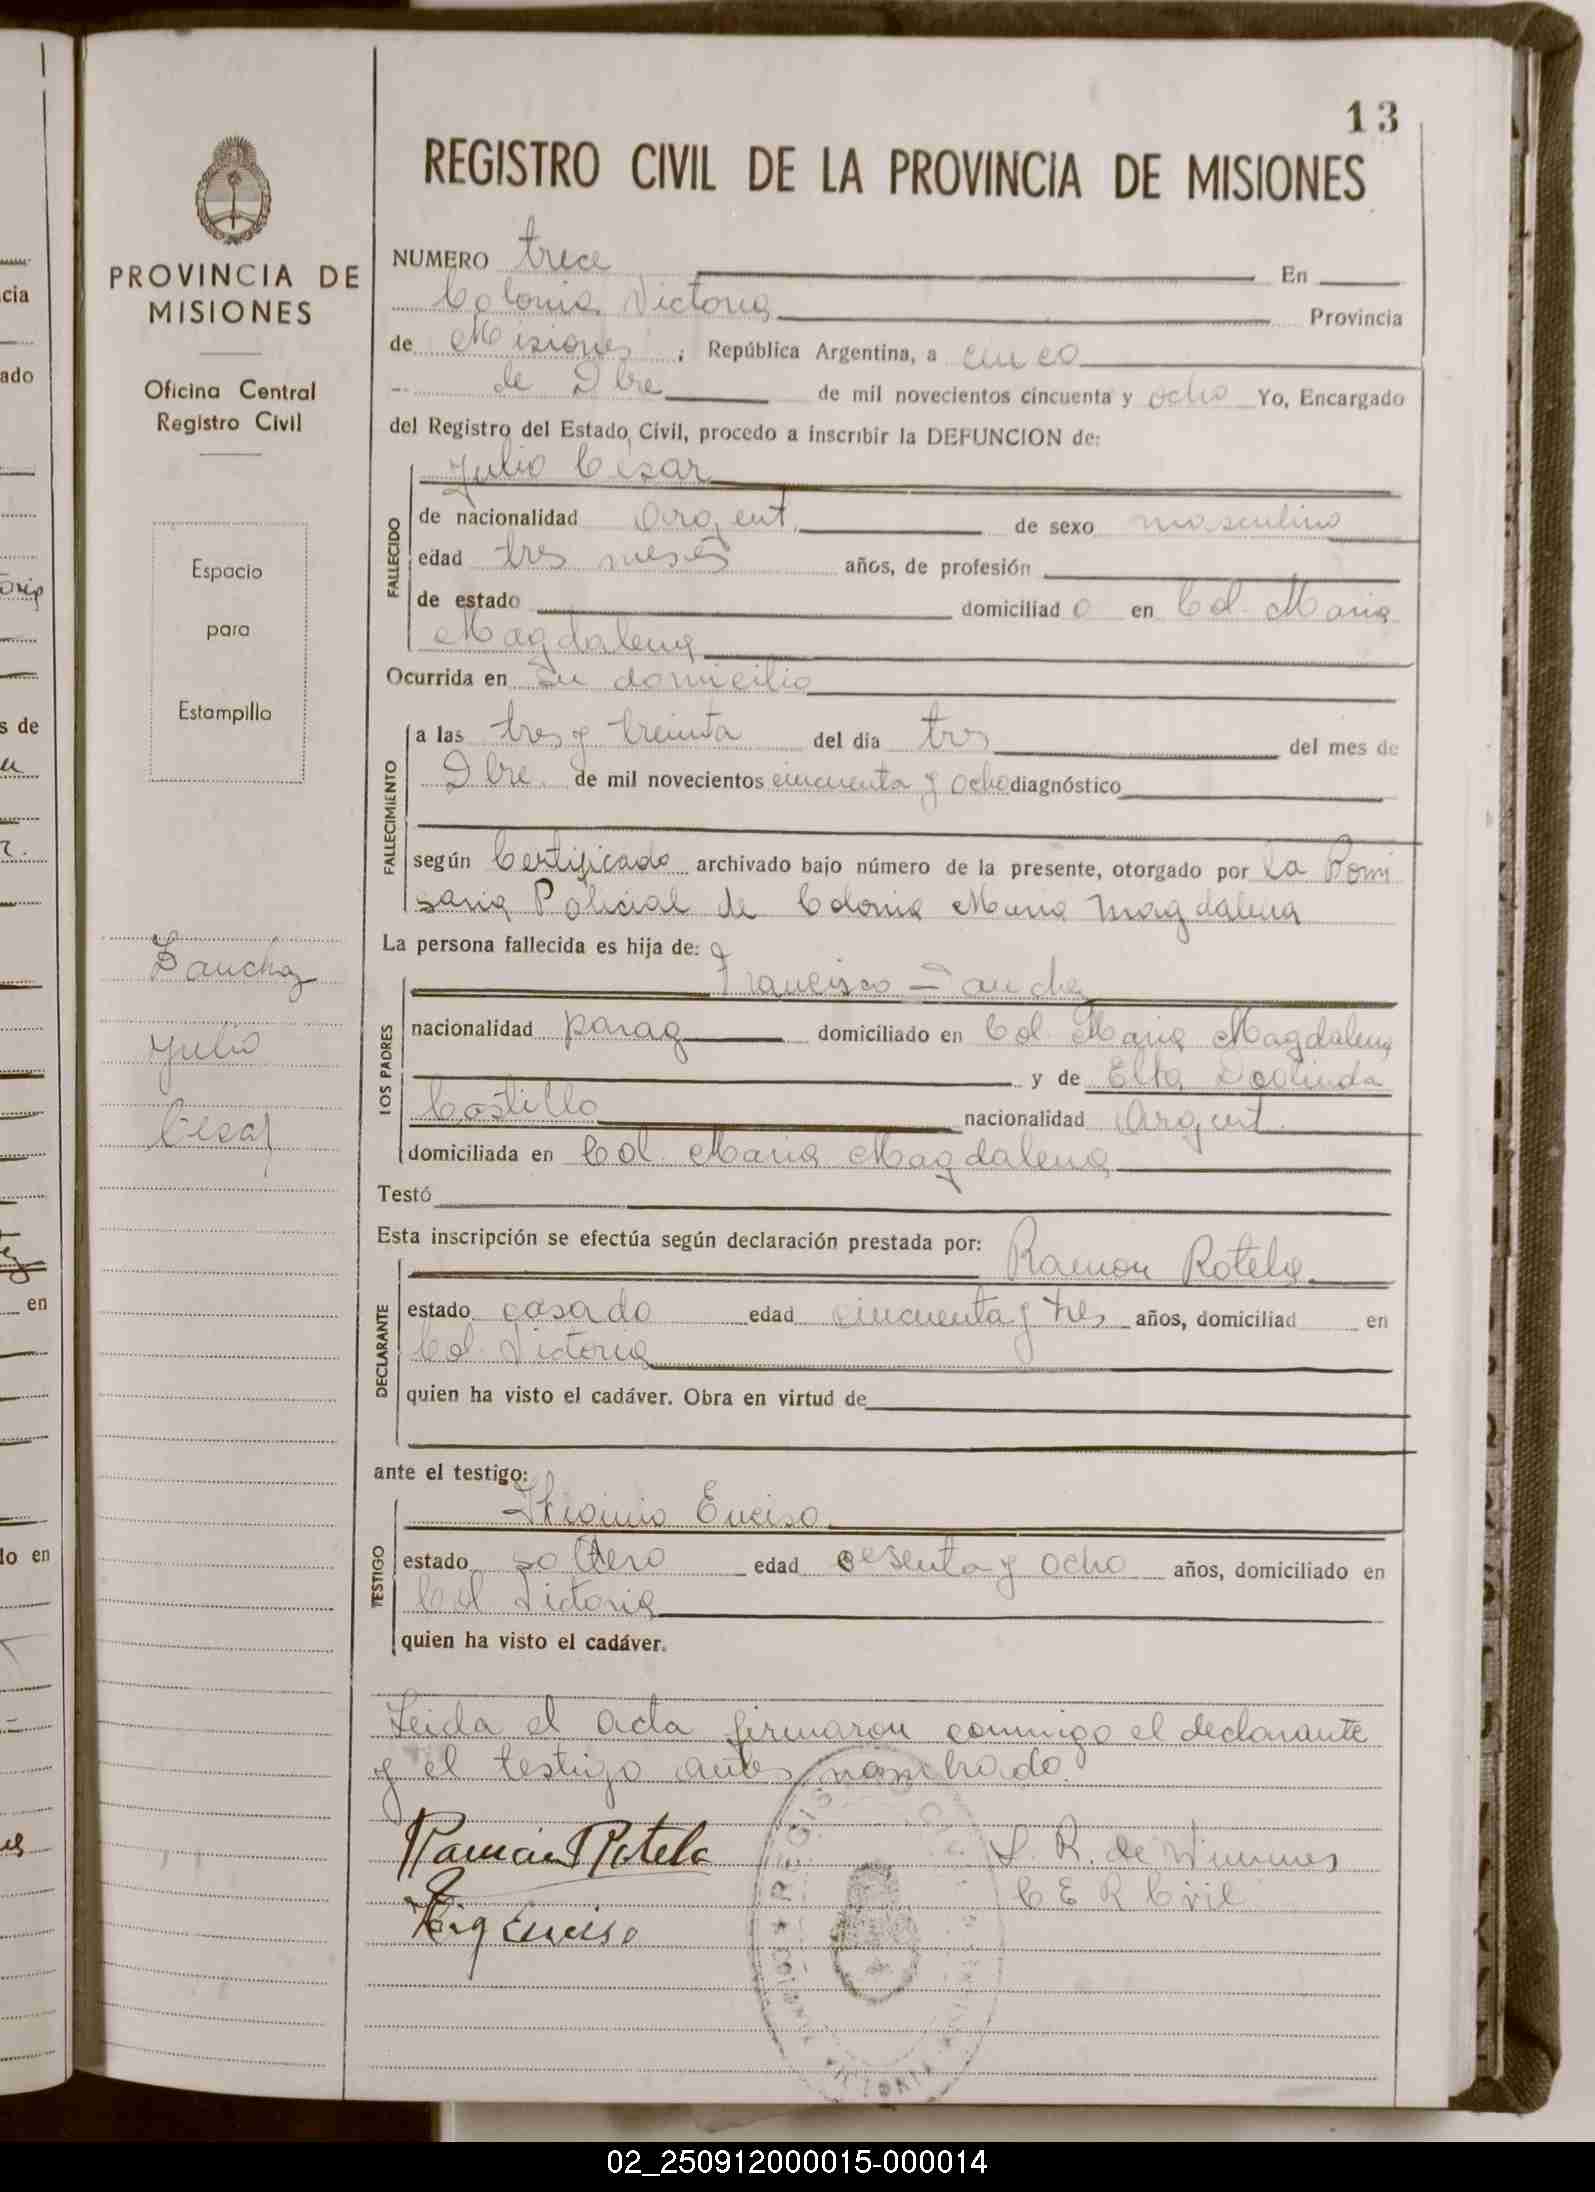 13
REGISTRO CIVIL DE LA PROVINCIA DE MISIONES
PROVINCIA DE
MISIONES
Oficina Central
Registro Civil
Espacio
para
Estampilla
Sanchez
Julio
Cesar
NUMERO trece En
Colonia Victoria Provincia
de Misiones, República Argentina, a cinco
de Dbre de mil novecientos cincuenta y ocho Yo, Encargado
del Registro del Estado Civil, procedo a inscribir la DEFUNCION de:
Julio Cesar
FALLECIDO
de nacionalidad Argent. de sexo masculino
edad tres meses años, de profesión
de estado domiciliad o en Col. Maria
Magdalena
Ocurrida en su domicilio
FALLECIMIENTO
a las tres y treinta del día tres del mes de
Dbre. de mil novecientos cincuenta y ocho diagnóstico
según Certificado archivado bajo número de la presente, otorgado por la Comi
saria Policial de Colonia Maria Magdalena
La persona fallecida es hija de:
LOS PADRES
Francisco Sanchez
nacionalidad parag domiciliado en Col. Maria Magdalena
y de Elba
Castillo nacionalidad Argent.
domiciliada en Col. Maria Magdalena
Testó
Esta inscripción se efectúa según declaración prestada por:
DECLARANTE
Ramon Rotela
estado casado edad cincuenta y tres años, domiciliad en
Col. Victoria
quien ha visto el cadáver. Obra en virtud de
ante el testigo:
TESTIGO
Higinio Enciso
estado soltero edad sesenta y ocho años, domiciliado en
Col Victoria
quien ha visto el cadáver.
Leida el acta firmaron conmigo el declarante
y el testigo antes
Ramón Rotela
Hig Enciso
S. R. de
C E R Civil
02_250912000015-000014